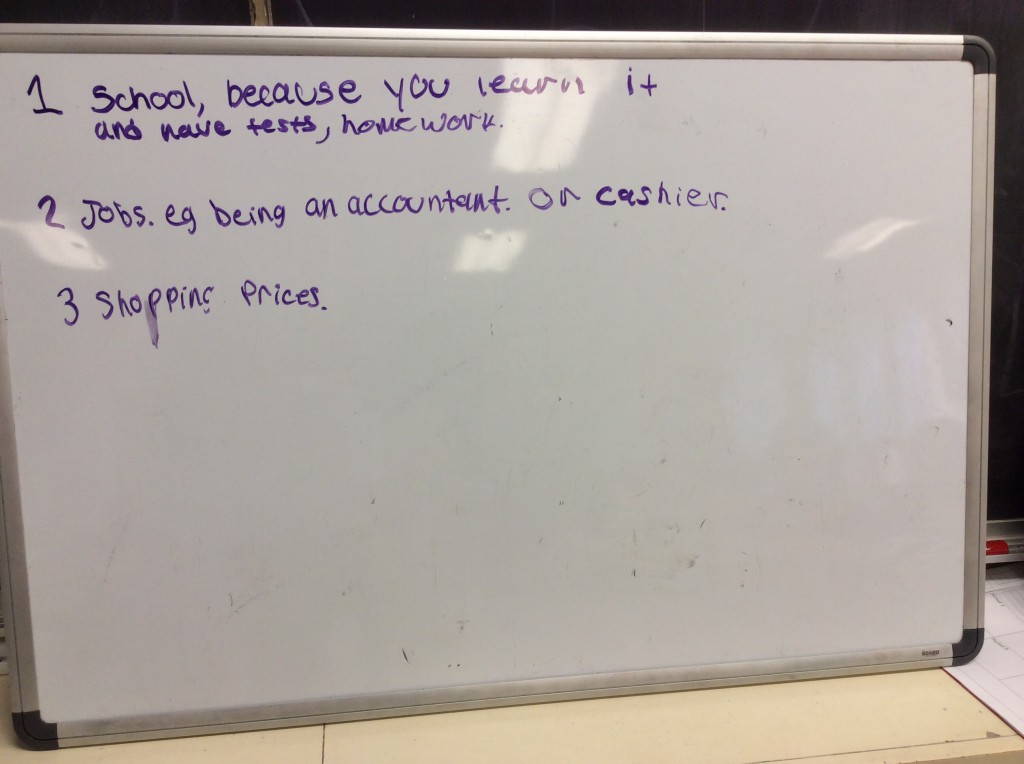 1 School, because you learn it
and have tests, homework.
2 Jobs. eg being an accountant. or cashier.
3 Shopping Prices.